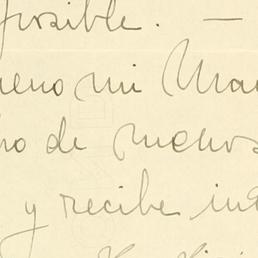 posible. —
ueno mi Mar
ho de menos
y recibe in